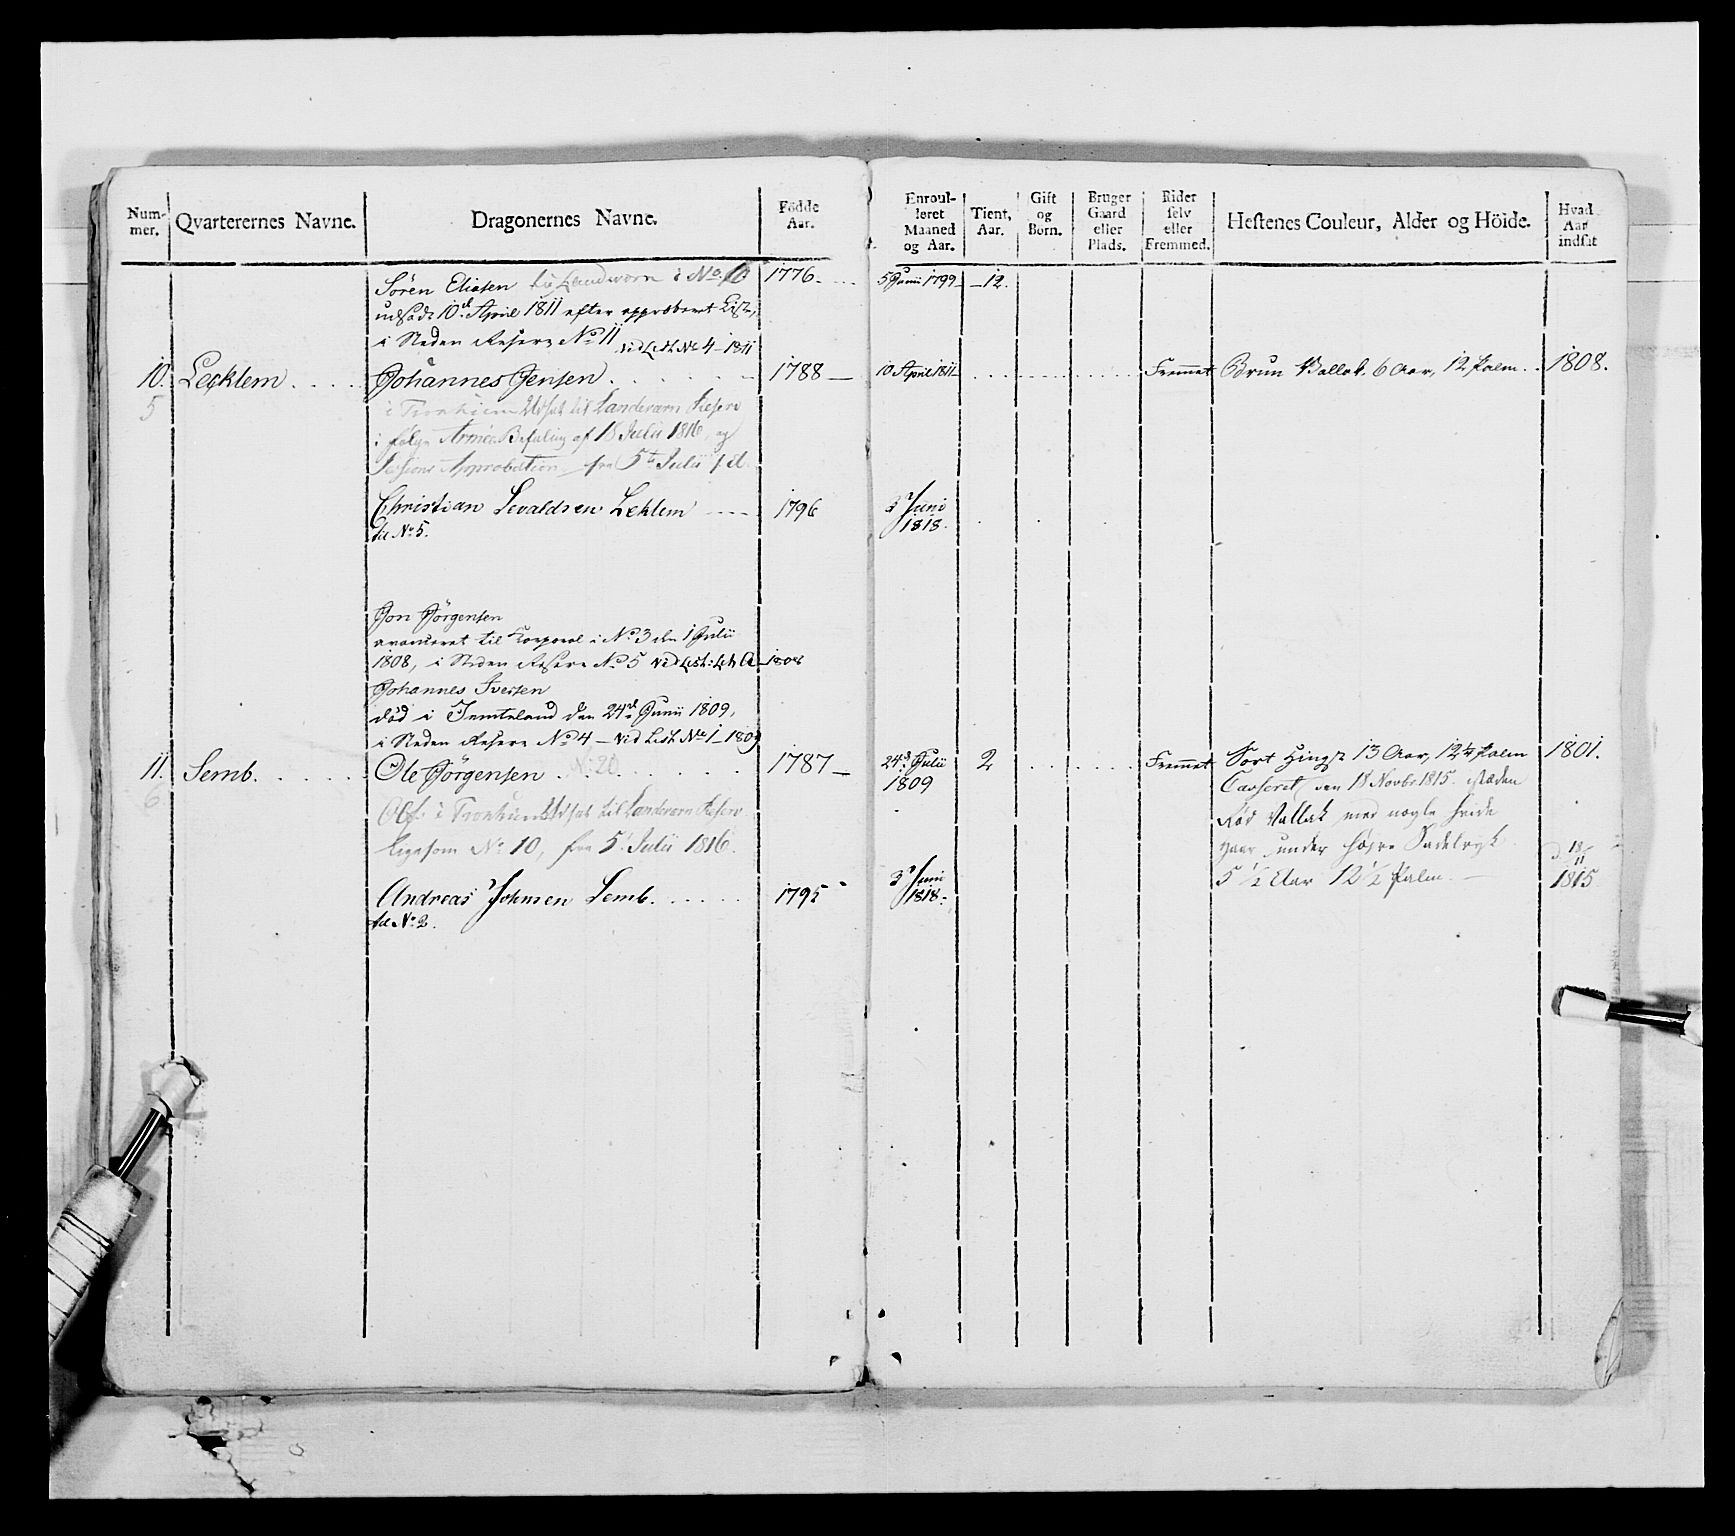 Num-
mer.
Qvarterernes Navne.
Dragonernes Navne.
Födde
Aar.
Enroul-
leret
Maaned
og Aar.
Tient,
Aar.
Gift
og
Børn.
Bruger
Gaard
eller
Plads.
Rider
selv
eller
Fremmed.
Hestenes Couleur, Alder og Höide.
Hvad
Aar
indsat
Sören Eliasen til Landværn i No. 10 1776. 5 Junii 1799 12.
udsadt 10d April 1811 efter approberet Liste,
i Steden Reserve No 11
vid List No 4 - 1811
10. Lecklem Johannes Jensen 1788 10 April 1811 Fremmet Brun Vallak 6 Aar, 12 Palm. 1808.
5 i Tronhiem Udsat til Landeværn Reserv
i følge Armee Befaling af 18 Julii 1816, og
Sessions Approbation fra 5te Julii
Christian Sevaldsen Leklem 1796 3 Juni
1818.
No 5.
Jon Jörgensen
avanceret til Corporal i No 3 den 1 Julii
1808, i Steden Reserve No 5 vid List: Lit A 1808
Johannes Iversen
död i Jemteland den 24d Junii 1809,
i Steden Reserve No 4 - vid List No 1 - 1809
11. Semb. Ole Jörgensen No 20 1787 24d Julii
1809 2 Fremmet Sort Hingst 13 Aar, 12¼ Palm 1801.
6 i Tronhiem Udsat til Landeværn Reserv
ligesom No 10, fra 5 Julii 1816.
Casseret den 18 Novbr 1815. Steden
Rød Vallak med nogle hvide
Haar under høire Sadelryk
5 ½ Aar 12 ½ Palm. 18/11
1815
Andreas Johnsen Semb. 1795 3 Juni
1818.
No 2.